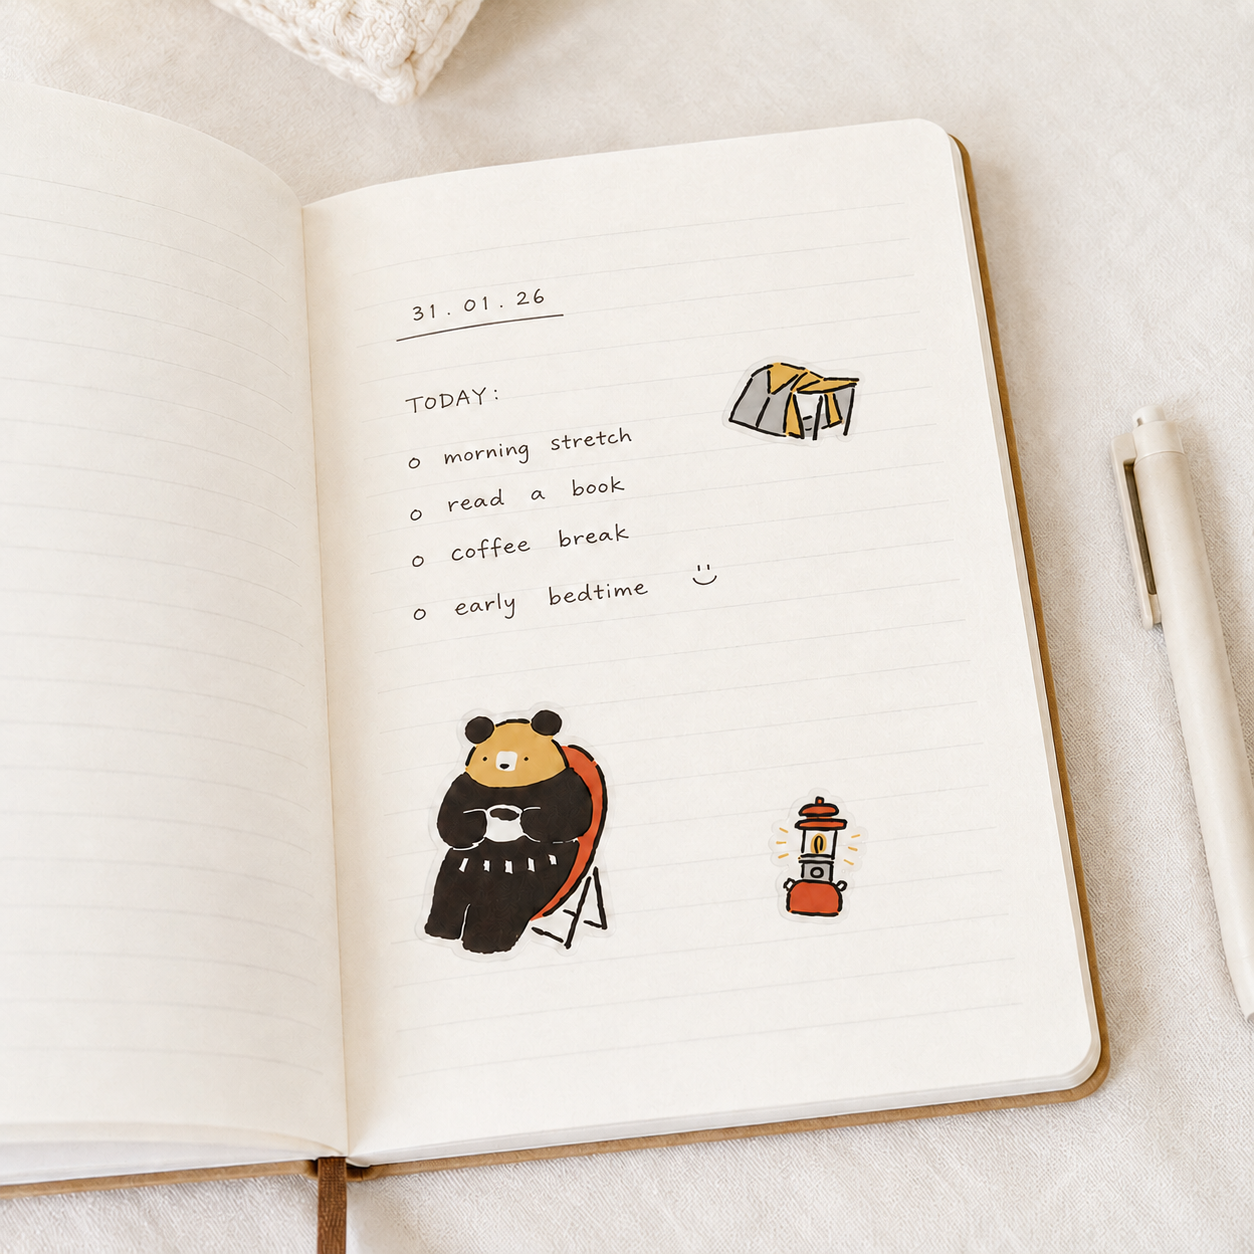 31 . 01 . 26
TODAY:
o morning stretch
o read a book
o coffee break
o early bedtime